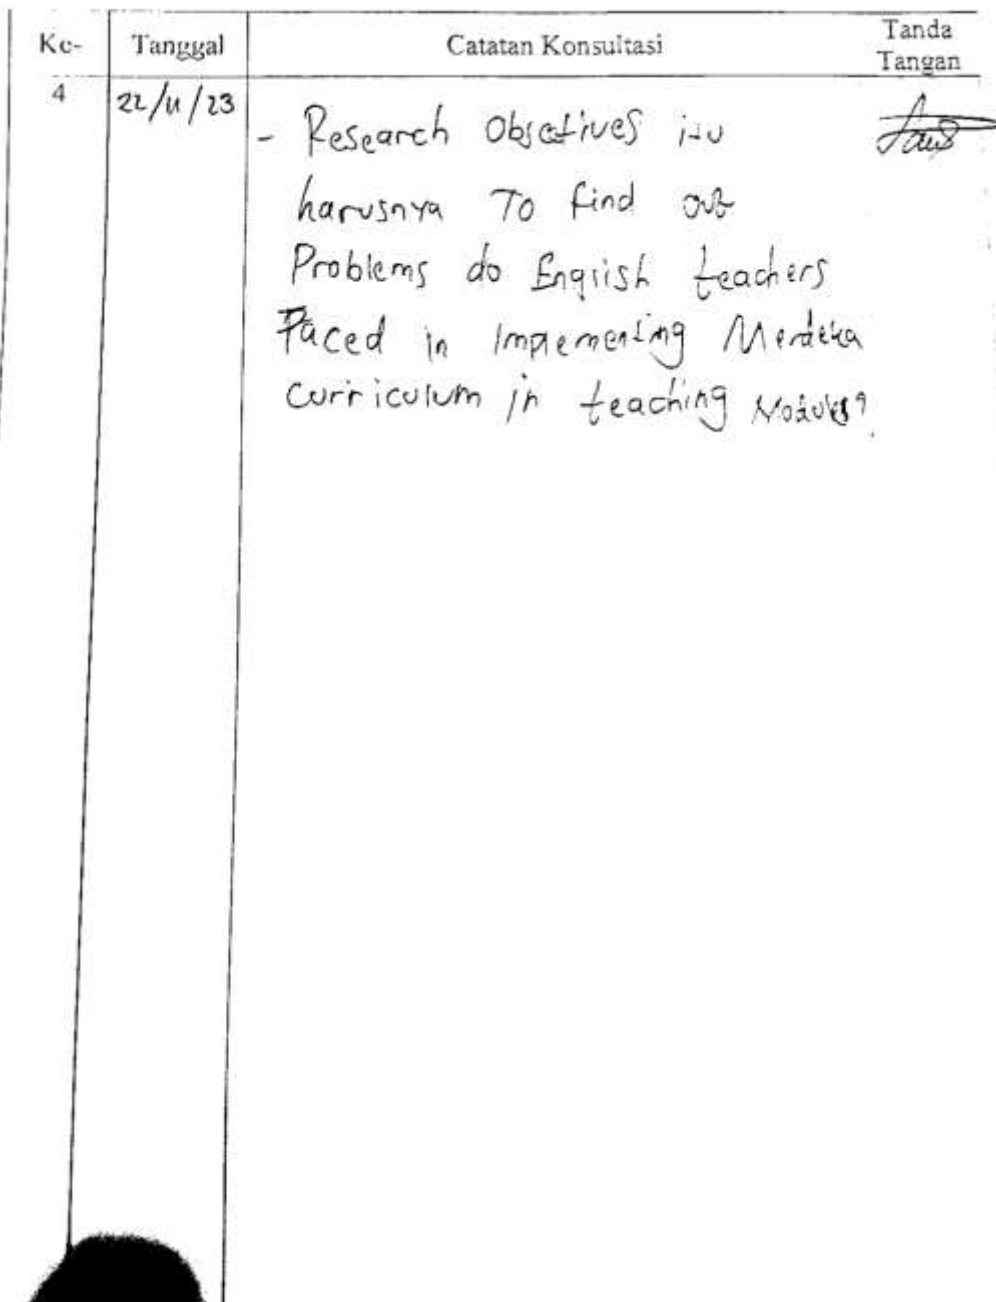 Ke- Tanggal Catatan Konsultasi Tanda Tangan
4 22/11/23 - Research Objectives itu
harusnya To find out
Problems do English teachers
Faced in Implementing Merdeka
curriculum in teaching Modules?